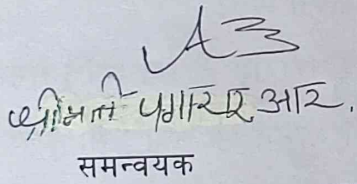 श्रीमती पगारर आर.
समन्वयक